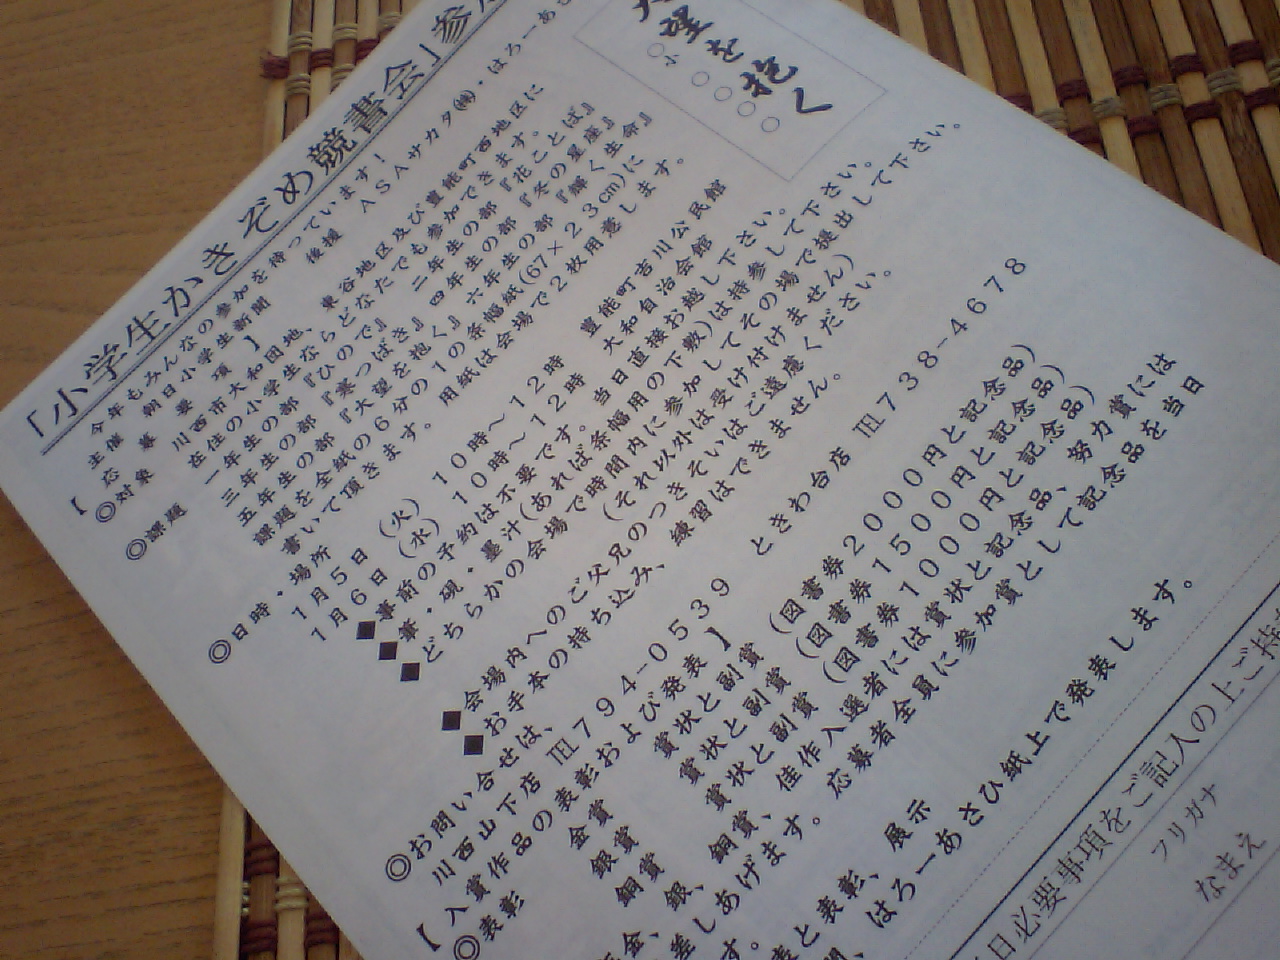 「小学生かきぞめ競書会」参
今年もみんなの参加を待っています!
主催 朝日小学生新聞 後援 ASAサカタ㈱・はろーあさ
【 応 募 要 項 】
◎対象 川西市大和団地、東谷地区及び豊能町西地区に
在住の小学生ならどなたでも参加できます。
◎課題 一年生の部 『ひので』 二年生の部 『花ことば』
三年生の部 『寒つばき』 四年生の部 『冬の星座』
五年生の部 『大望を抱く』 六年生の部 『輝く生命』
課題を全紙の6分の1の条幅紙(67×23cm)に
書いて頂きます。 用紙は会場で2枚用意します。
◎日時・場所
1月5日 (火) 10時〜12時 豊能町吉川公民館
1月6日 (水) 10時〜12時 大和自治会館
◆事前の予約は不要です。当日直接お越し下さい。
◆筆・硯・墨汁(あれば条幅用の下敷)は持参して下さい。
◆どちらかの会場で時間内に参加してその場で提出して下さい。
(それ以外は受け付けません)
◆会場内へのご父兄のつきそいはご遠慮ください。
◆お手本の持ち込み、練習はできません。
◎お問い合せは、
川西山下店 ℡794-0539 ときわ台店 ℡738-4678
【 入賞作品の表彰および発表 】
◎表彰 金賞 賞状と副賞 (図書券2000円と記念品)
銀賞 賞状と副賞 (図書券1500円と記念品)
銅賞 賞状と副賞 (図書券1000円と記念品)
金、銀、銅賞、佳作入選者には賞状と記念品、努力賞には
差しあげます。応募者全員に参加賞として記念品を当日
す。
表と表彰、展示
間、はろーあさひ紙上で発表します。
日必要事項をご記入の上ご持
フリガナ
なまえ
望を抱く
小 ○○○○